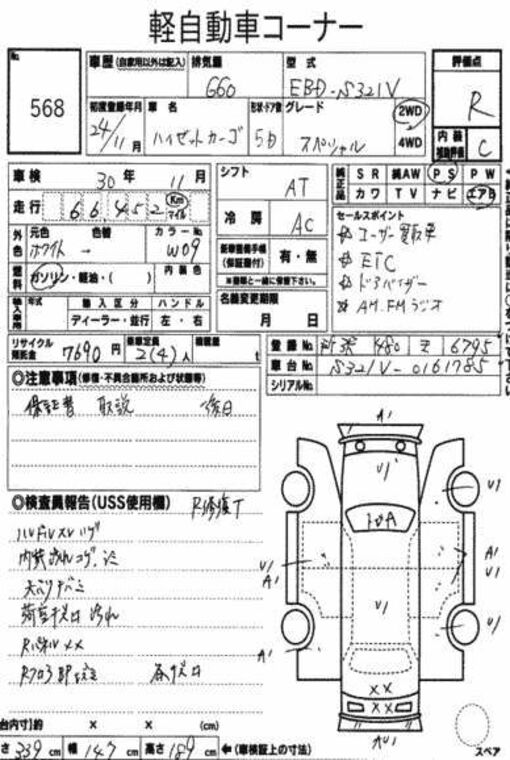 軽自動車コーナー
No.
568
車歴 (自家用以外は記入)
排気量
660
型式
EBD-S321V
評価点
R
初度登録年月
24/11月
車名
ハイゼットカーゴ
形状・ドア数
5D
グレード
スペシャル
2WD
4WD
内装
補助評価
C
車検 30年 11月
シフト
AT
純正品
SR 純AW PS PW
カワ TV ナビ エアB
走行 66,452 Km マイル
冷房
AC
セールスポイント
☆ユーザー買取車
☆ETC
☆ドアバイザー
☆AM.FMラジオ
外色
元色 色替 カラーNo.
ホワイト → W09
新車整備手帳
(保証書付)
有・無
燃料
ガソリン・軽油・( )
内装色
輸入車用
年式
輸入区分
ディーラー・並行
ハンドル
左・右
名義変更期限
月 日
リサイクル
預託金
7690円
乗車定員
2(4)人
積載量
t
登録No. 480 え 6795
車台No. S321V-0161785
シリアルNo.
◎注意事項 (修復・不具合箇所および状態等)
保証書 取説 後日
◎検査員報告 (USS使用欄) R修復T
内装汚れコゲ
荷室キズ凹汚れ
RパネルXX
A1
U1'
U1
A1
U1
U1
U1
A1
10A
U1
A1
XX
XX
AU1
スペア
台内寸)約 × × (cm)
さ 339 cm 幅 147 cm 高さ 189 cm ←(車検証上の寸法)